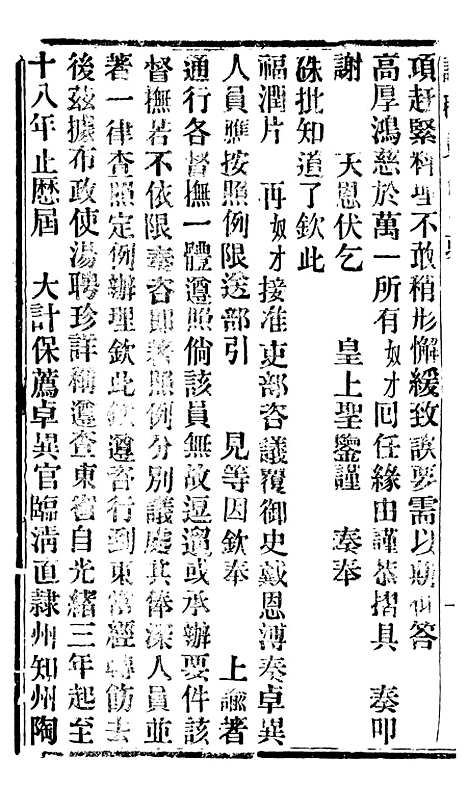 項赶緊料理不敢稍形懈緩致誤要需以期仰答
高厚鴻慈於萬一所有奴才囘任緣由謹恭摺具　奏叩
謝　天恩伏乞　皇上聖鑒謹　奏奉
硃批知道了欽此
福潤片　再奴才接准吏部咨議覆御史戴恩溥奏卓異
人員應按照例限送部引　見等因欽奉　上諭著
通行各督撫一體遵照倘該員無故逗遛或承辦要件該
督撫若不依限奏咨卽著照例分別議處其俸深人員並
著一律查照定例辦理欽此欽遵咨行到東當經轉飭去
後茲據布政使湯聘珍詳稱遵查東省自光緒三年起至
十八年止歷屆　大計保薦卓異官臨淸直隸州知州陶